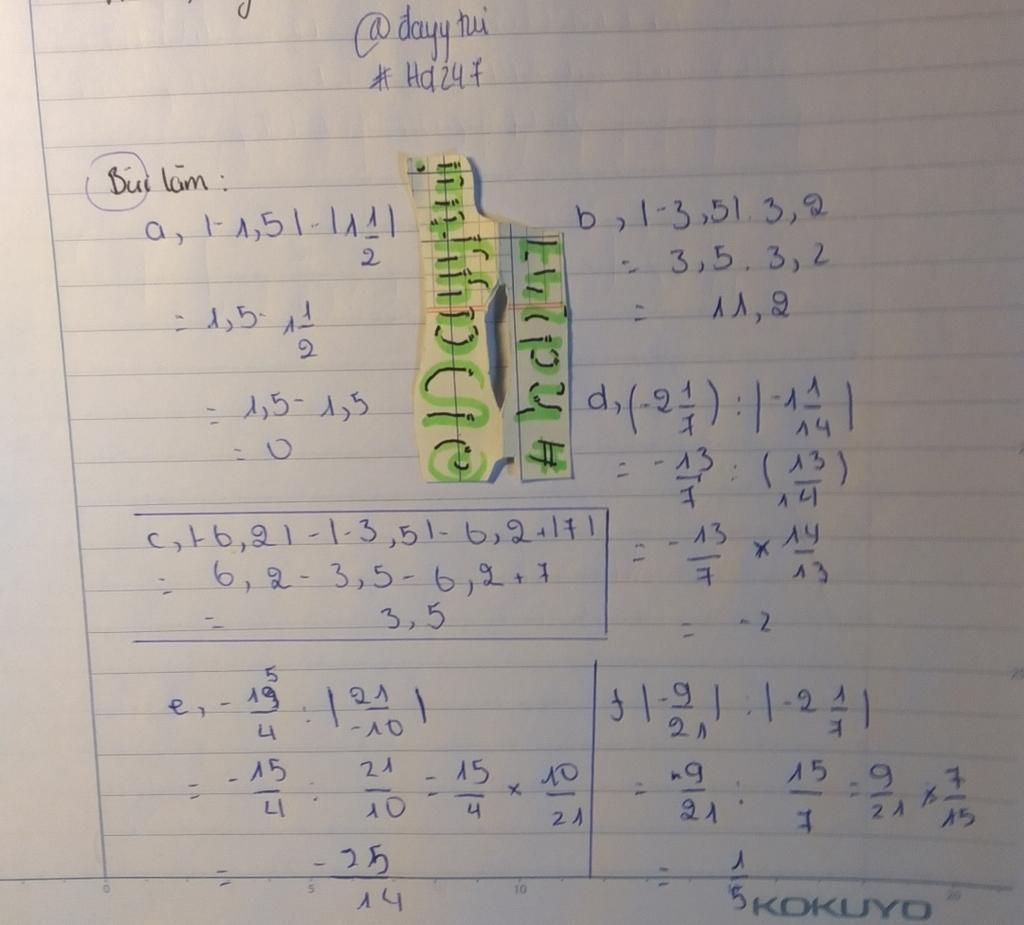 @dayytui
# Hd247
Bài làm:
a, |-1,5| - |1 1/2|
= 1,5 - 1 1/2
= 1,5 - 1,5
= 0
b, |-3,5|. 3,2
= 3,5. 3,2
= 11,2
c, |-6,2| - |-3,5| - 6,2 + |7|
= 6,2 - 3,5 - 6,2 + 7
= 3,5
d, (-2 1/7) : |-1 1/14|
= -13/7 : (13/14)
= -13/7 × 14/13
= -2
e, -15/4 : |21/-10|
= -15/4 : 21/10 = -15/4 × 10/21
= -25/14
f |-9/21| : |-2 1/7|
= 9/21 : 15/7 = 9/21 × 7/15
= 1/5
# Hd247
0 5 10
KOKUYO